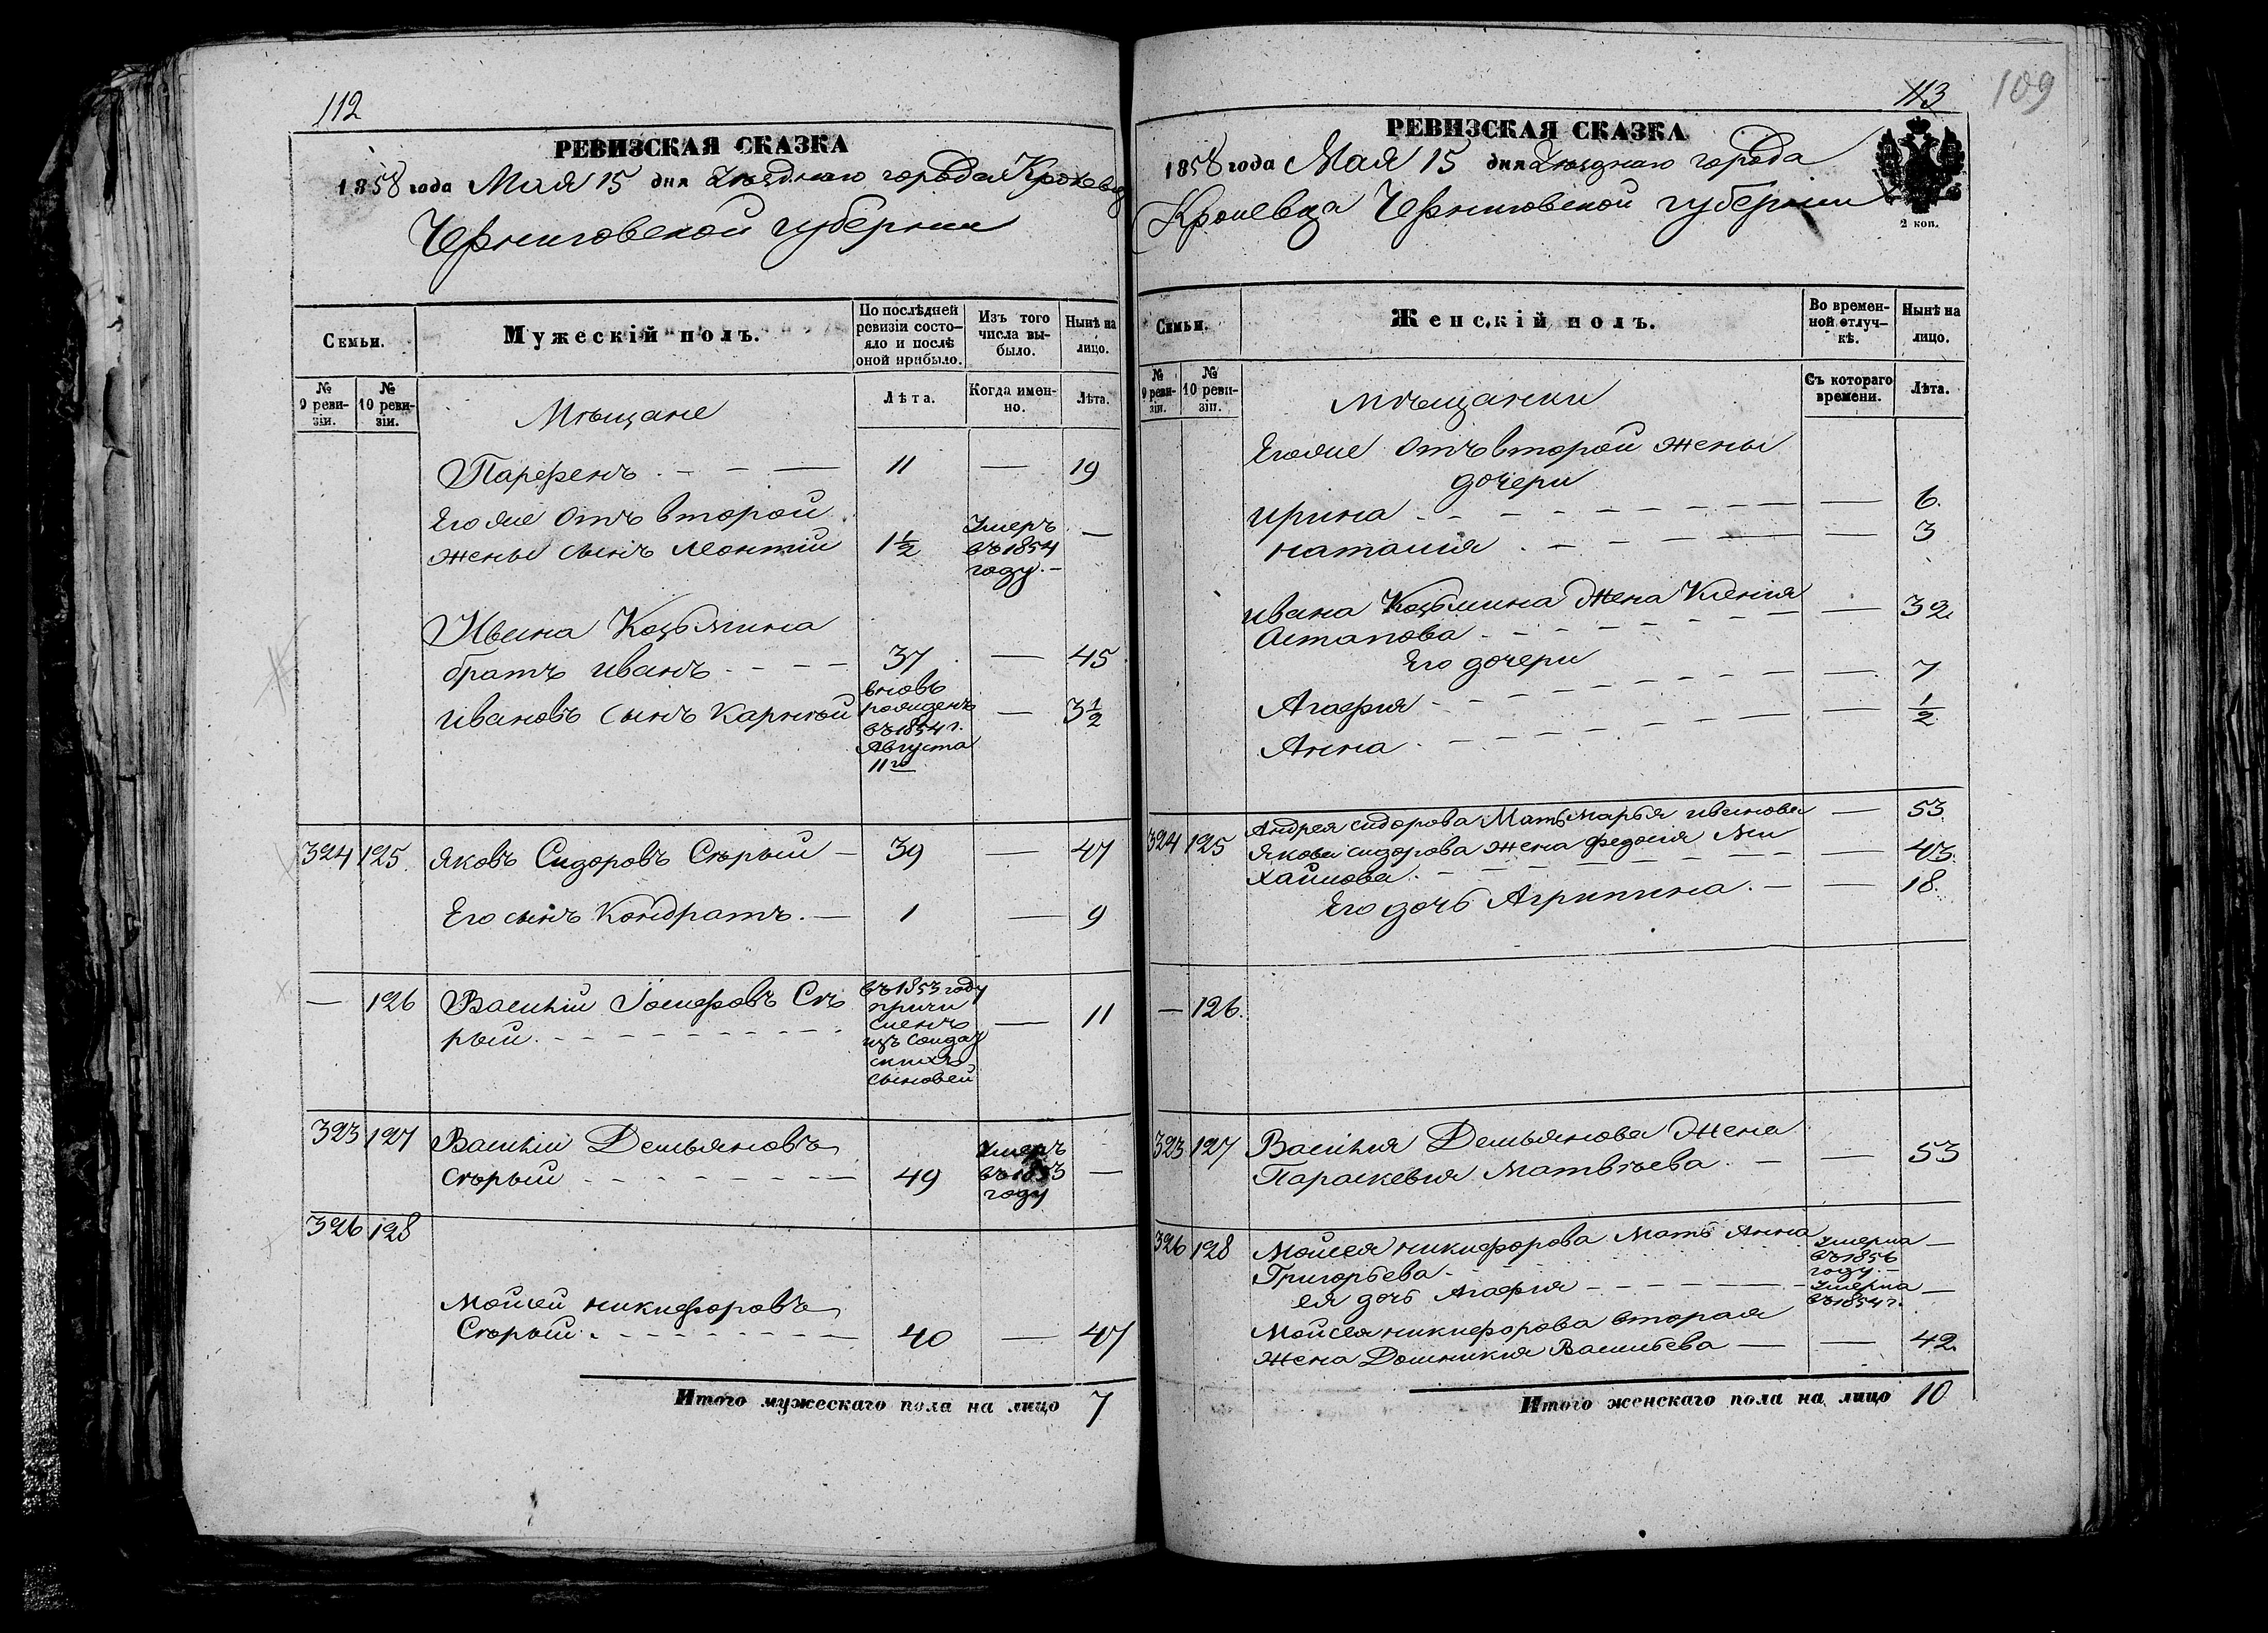 112
РЕВИЗСКАЯ СКАЗКА
1858 года Мая 15 дня Уѣзднаго города Кролевца
Черниговской губернии
Семьи.
Мужескій полъ.
По послѣдней ревизіи состояло и послѣ оной прибыло.
Изъ того числа выбыло.
Нынѣ на лицо.
№ 9 ревизіи.
№ 10 ревизіи.
Мѣщане
Лѣта.
Когда именно.
Лѣта.
Парфенъ 11 — 19
Его же отъ второй
жены сынъ Леонтій 1½ Умеръ въ 1854 году. —
Ивана Козьмина
братъ Иванъ 37 — 45
Ивановъ сынъ Карнѣй вновь рожденъ въ 1854 г. Августа 11го — 3½
324 125 Яковъ Сидоровъ Сѣрый — 39 — 47
Его сынъ Кондратъ. — 1 — 9
— 126 Василій Іосифовъ Сѣ
рый въ 1853 году причисленъ изъ солдатскихъ сыновей — 11
323 127 Василій Демьяновъ
Сѣрый 49 Умеръ въ 1853 году —
326 128
Мойсей Никифоровъ
Сѣрый 40 — 47
Итого мужескаго пола на лицо 7
113
109
РЕВИЗСКАЯ СКАЗКА
1858 года Мая 15 дня Уѣзднаго города
Кролевца Черниговской губернии
2 коп.
Семьи.
Женскій полъ.
Во временной отлучкѣ.
Нынѣ на лицо.
№ 9 ревизіи.
№ 10 ревизіи.
Мѣщанки
Съ котораго времени.
Лѣта.
Его же отъ второй жены
дочери
Ирина — 6.
Наталия — 3
Ивана Козьмина жена Ксенія
Астапова — 32
Его дочери
Агафия — 7
Анна — ½
324 125 Андрея Сидорова Мать Марья Иванова — 53
Якова Сидорова жена Федосія Ми
хайлова — 43.
Его дочь Агрипина. — — 18.
— 126.
323 127 Василия Демьянова Жена
Параскевия Матвѣева — 53
326 128 Мойсея Никифорова Мать Анна
Григорьева Умерла въ 1856 году —
ея дочь Агафия Умерла въ 1854 г. —
Мойсея Никифорова вторая
жена Домникия Васильева — — 42.
Итого женскаго пола на лицо 10